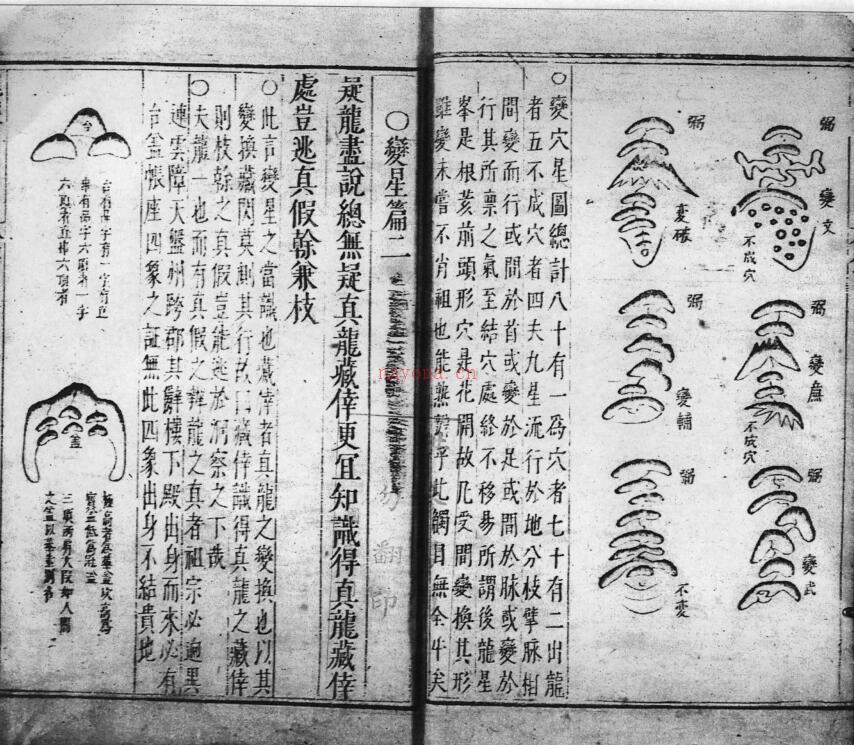 弼 變文 不成穴
弼 變廉 不成穴
弼 變武
弼 变破
弼 變輔
弼 不变
○變穴星圖總計八十有一爲穴者七十有二出龍
者五不成穴者四夫九星流行於地分枝擘脉相
間變而行或間於首或變於是或間於脉或變於
行其所禀之氣至結穴處終不移易所謂後龍星
峯是根荄前頭形穴是花開故凡受間變換其形
雖變未嘗不肖祖也能熟 乎此觸目無全牛矣
○變星篇二
疑龍盡說總無疑真龍藏倖更宜知識得真龍藏倖
處豈逃真假幹兼枝
○此言變星之當識也藏倖者真龍之變換也以其
變換藏閃莫測其行故曰藏倖識得真龍之藏倖
則枝幹之真假豈能逃於洞察之下哉
○夫龍一也而有真假之辨龍之真者祖宗必逈異
連雲障天盤州跨郡其辭樓下殿出身而來必有
台盖帳座四象之証無此四象出身不結貴地
台
盖
翻印
nayona.cn